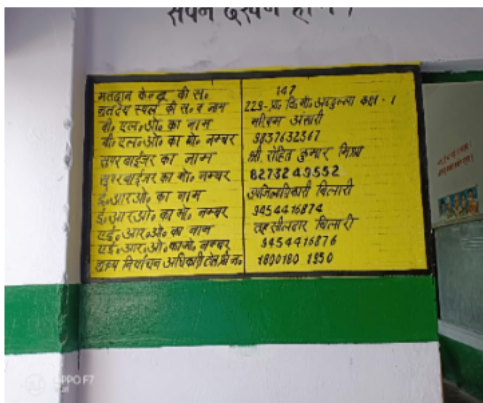 सपने देखने हो
मतदान केन्द्र की सं० 147
मतदेय स्थल की सं० व नाम 229-प्रा० वि० मौ० अबदुल्ला कक्ष - 1
बी० एल० ओ० का नाम मरियम अंसारी
बी० एल० ओ० का मो० नम्बर 9837632567
सुपरवाईजर का नाम श्री रोहित कुमार मिश्रा
सुपरवाईजर का मो० नम्बर 8273249552
ई० आर० ओ० का नाम उपजिलाधिकारी बिलारी
ई० आर० ओ० का मो० नम्बर 9454416874
एई० आर० ओ० का नाम तहसीलदार बिलारी
एई० आर० ओ० का मो० नम्बर 9454416876
मुख्य निर्वाचन अधिकारी टोल फ्री न० 1800180 1950
OPPO F7